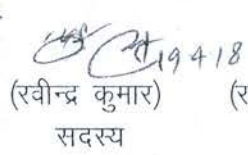 19418
(रवीन्द्र कुमार) (र
सदस्य